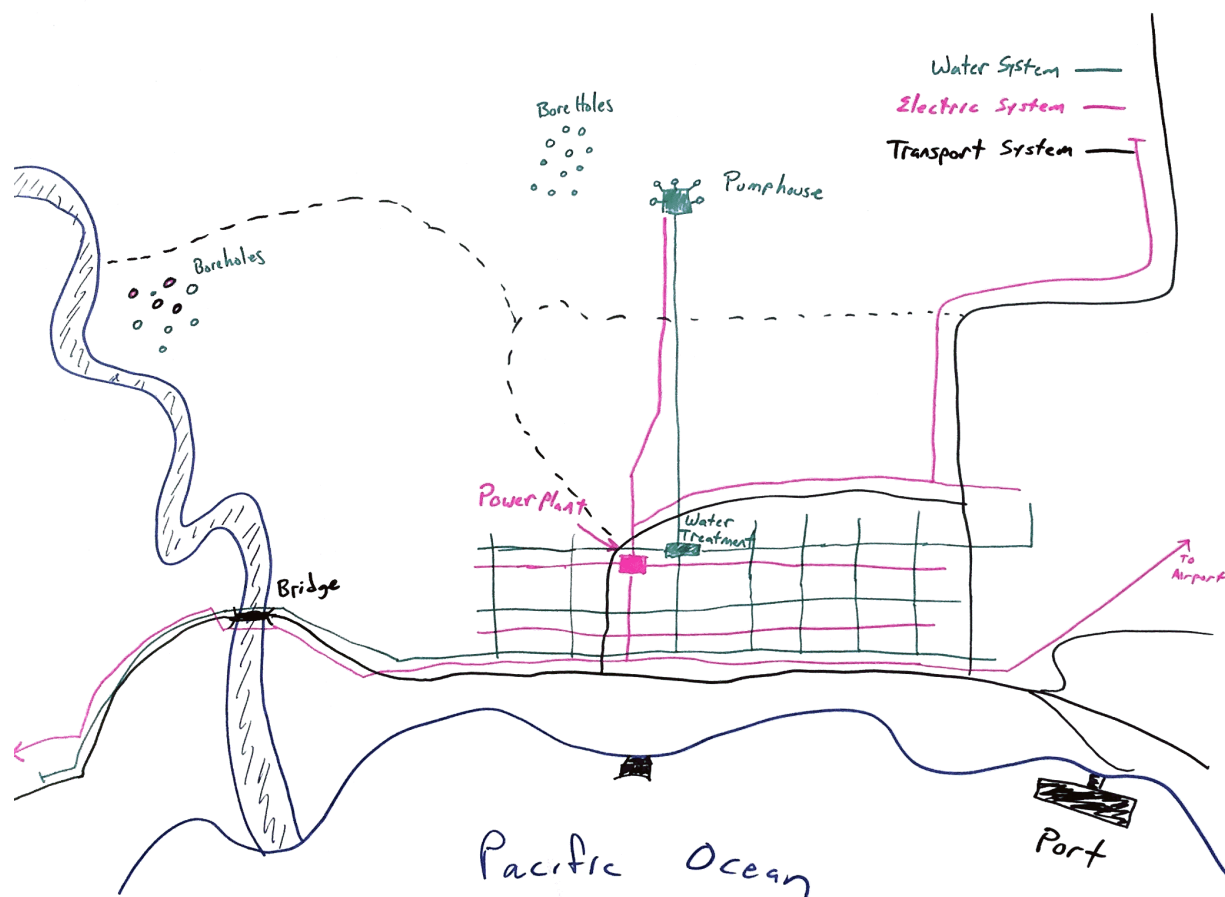 Water System
Electric System
Transport System
Bore Holes
Pumphouse
Boreholes
Power Plant
Water
Treatment
To
Airport
Bridge
Port
Pacific Ocean